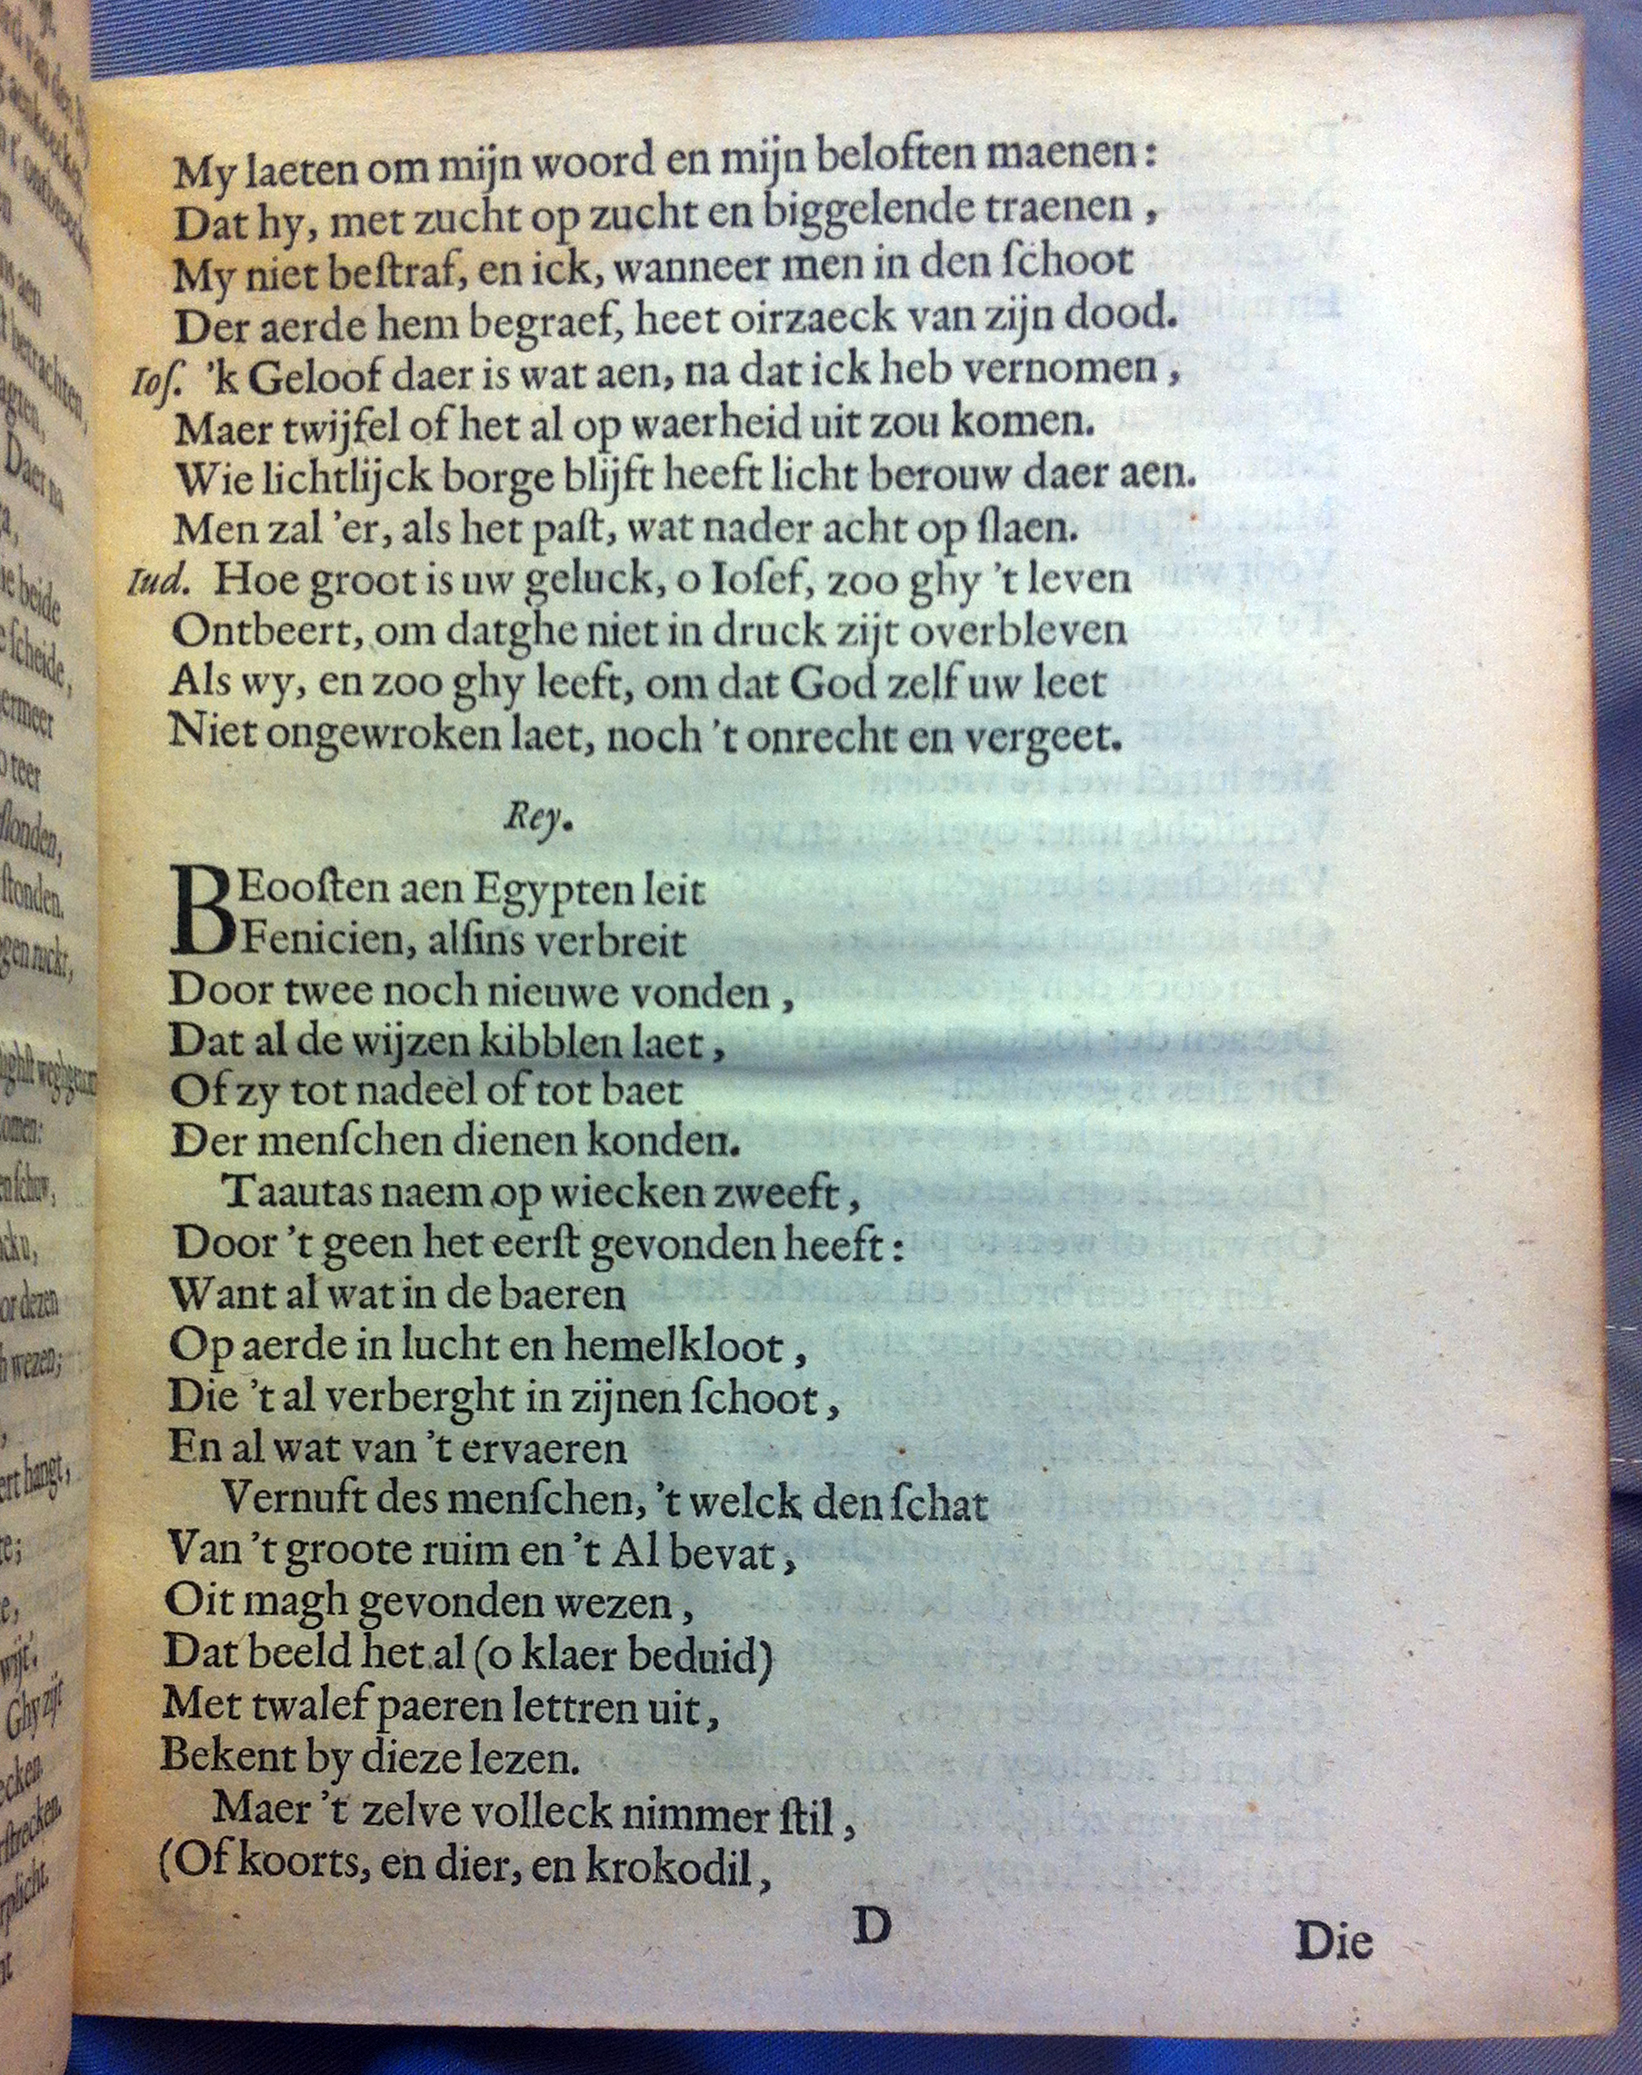 My laeten om mijn woord en mijn beloften maenen:
Dat hy, met zucht op zucht en biggelende traenen,
My niet beſtraf, en ick, wanneer men in den ſchoot
Der aerde hem begraef, heet oirzaeck van zijn dood.
Ioſ. 'k Geloof daer is wat aen, na dat ick heb vernomen,
Maer twijfel of het al op waerheid uit zou komen.
Wie lichtlijck borge blijft heeft licht berouw daer aen.
Men zal 'er, als het paſt, wat nader acht op ſlaen.
Iud. Hoe groot is uw geluck, o Ioſef, zoo ghy 't leven
Ontbeert, om datghe niet in druck zijt overbleven
Als wy, en zoo ghy leeft, om dat God zelf uw leet
Niet ongewroken laet, noch 't onrecht en vergeet.
Rey.
BEooſten aen Egypten leit
Fenicien, alſins verbreit
Door twee noch nieuwe vonden,
Dat al de wijzen kibblen laet,
Of zy tot nadeel of tot baet
Der menſchen dienen konden.
Taautas naem op wiecken zweeft,
Door 't geen het eerſt gevonden heeft:
Want al wat in de baeren
Op aerde in lucht en hemelkloot,
Die 't al verberght in zijnen ſchoot,
En al wat van 't ervaeren
Vernuft des menſchen, 't welck den ſchat
Van 't groote ruim en 't Al bevat,
Oit magh gevonden wezen,
Dat beeld het al (o klaer beduid)
Met twalef paeren lettren uit,
Bekent by dieze lezen.
Maer 't zelve volleck nimmer ſtil,
(Of koorts, en dier, en krokodil,
D
Die